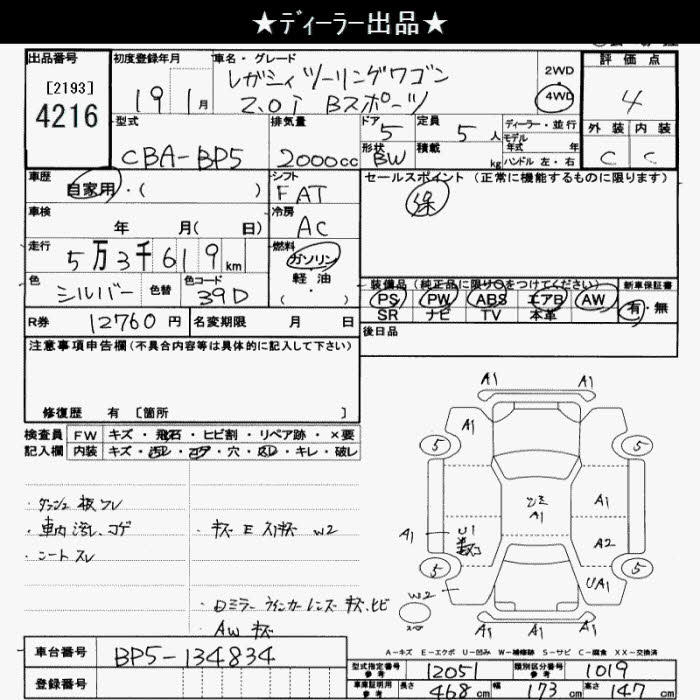 ★ディーラー出品★
出品番号 初度登録年月 車名・グレード 評価点
[2193] 4216 19 1月 レガシィ ツーリングワゴン 2WD 4WD 4
2.0i Bスポーツ
型式 排気量 ドア 5 定員 5人 ディーラー・並行 外装 内装
CBA-BP5 2000cc 形状 BW 積載 kg モデル年式 年 ハンドル 左・右 C C
車歴 自家用・( ) シフト FAT セールスポイント (正常に機能するものに限ります)
車検 年 月( 日) 冷房 AC 保
走行 5万3千619km 燃料 ガソリン・軽油 ( ・ )
色 シルバー 色替 色コード 39D 装備品 (純正品に限り○をつけてください) 新車保証書
PS PW ABS エアB AW 有・無
SR ナビ TV 本革
R券 12760円 名変期限 月 日 後日品
注意事項申告欄(不具合内容等は具体的に記入して下さい)
修復歴 有 [箇所 ]
検査員 FW キズ・飛石・ヒビ割・リペア跡・×要
記入欄 内装 キズ・汚レ・コゲ・穴・スレ・キレ・破レ
・車内 汚レ、コゲ
・シート スレ
・ロミラー ウインカーレンズ キズ、ヒビ
・AW キズ
A1 A1
A1
5 5
A1
A1 A1
A2
U1
5 5
UA1
W2
A1 A1 A1
A-キズ E-エクボ U-凹み W-補修跡 S-サビ C-腐食 XX-交換済
車台番号 BP5-134834
登録番号
型式指定番号 参考 12051 類別区分番号 参考 1019
車庫証明用 参考 長さ 468cm 幅 173cm 高さ 147cm